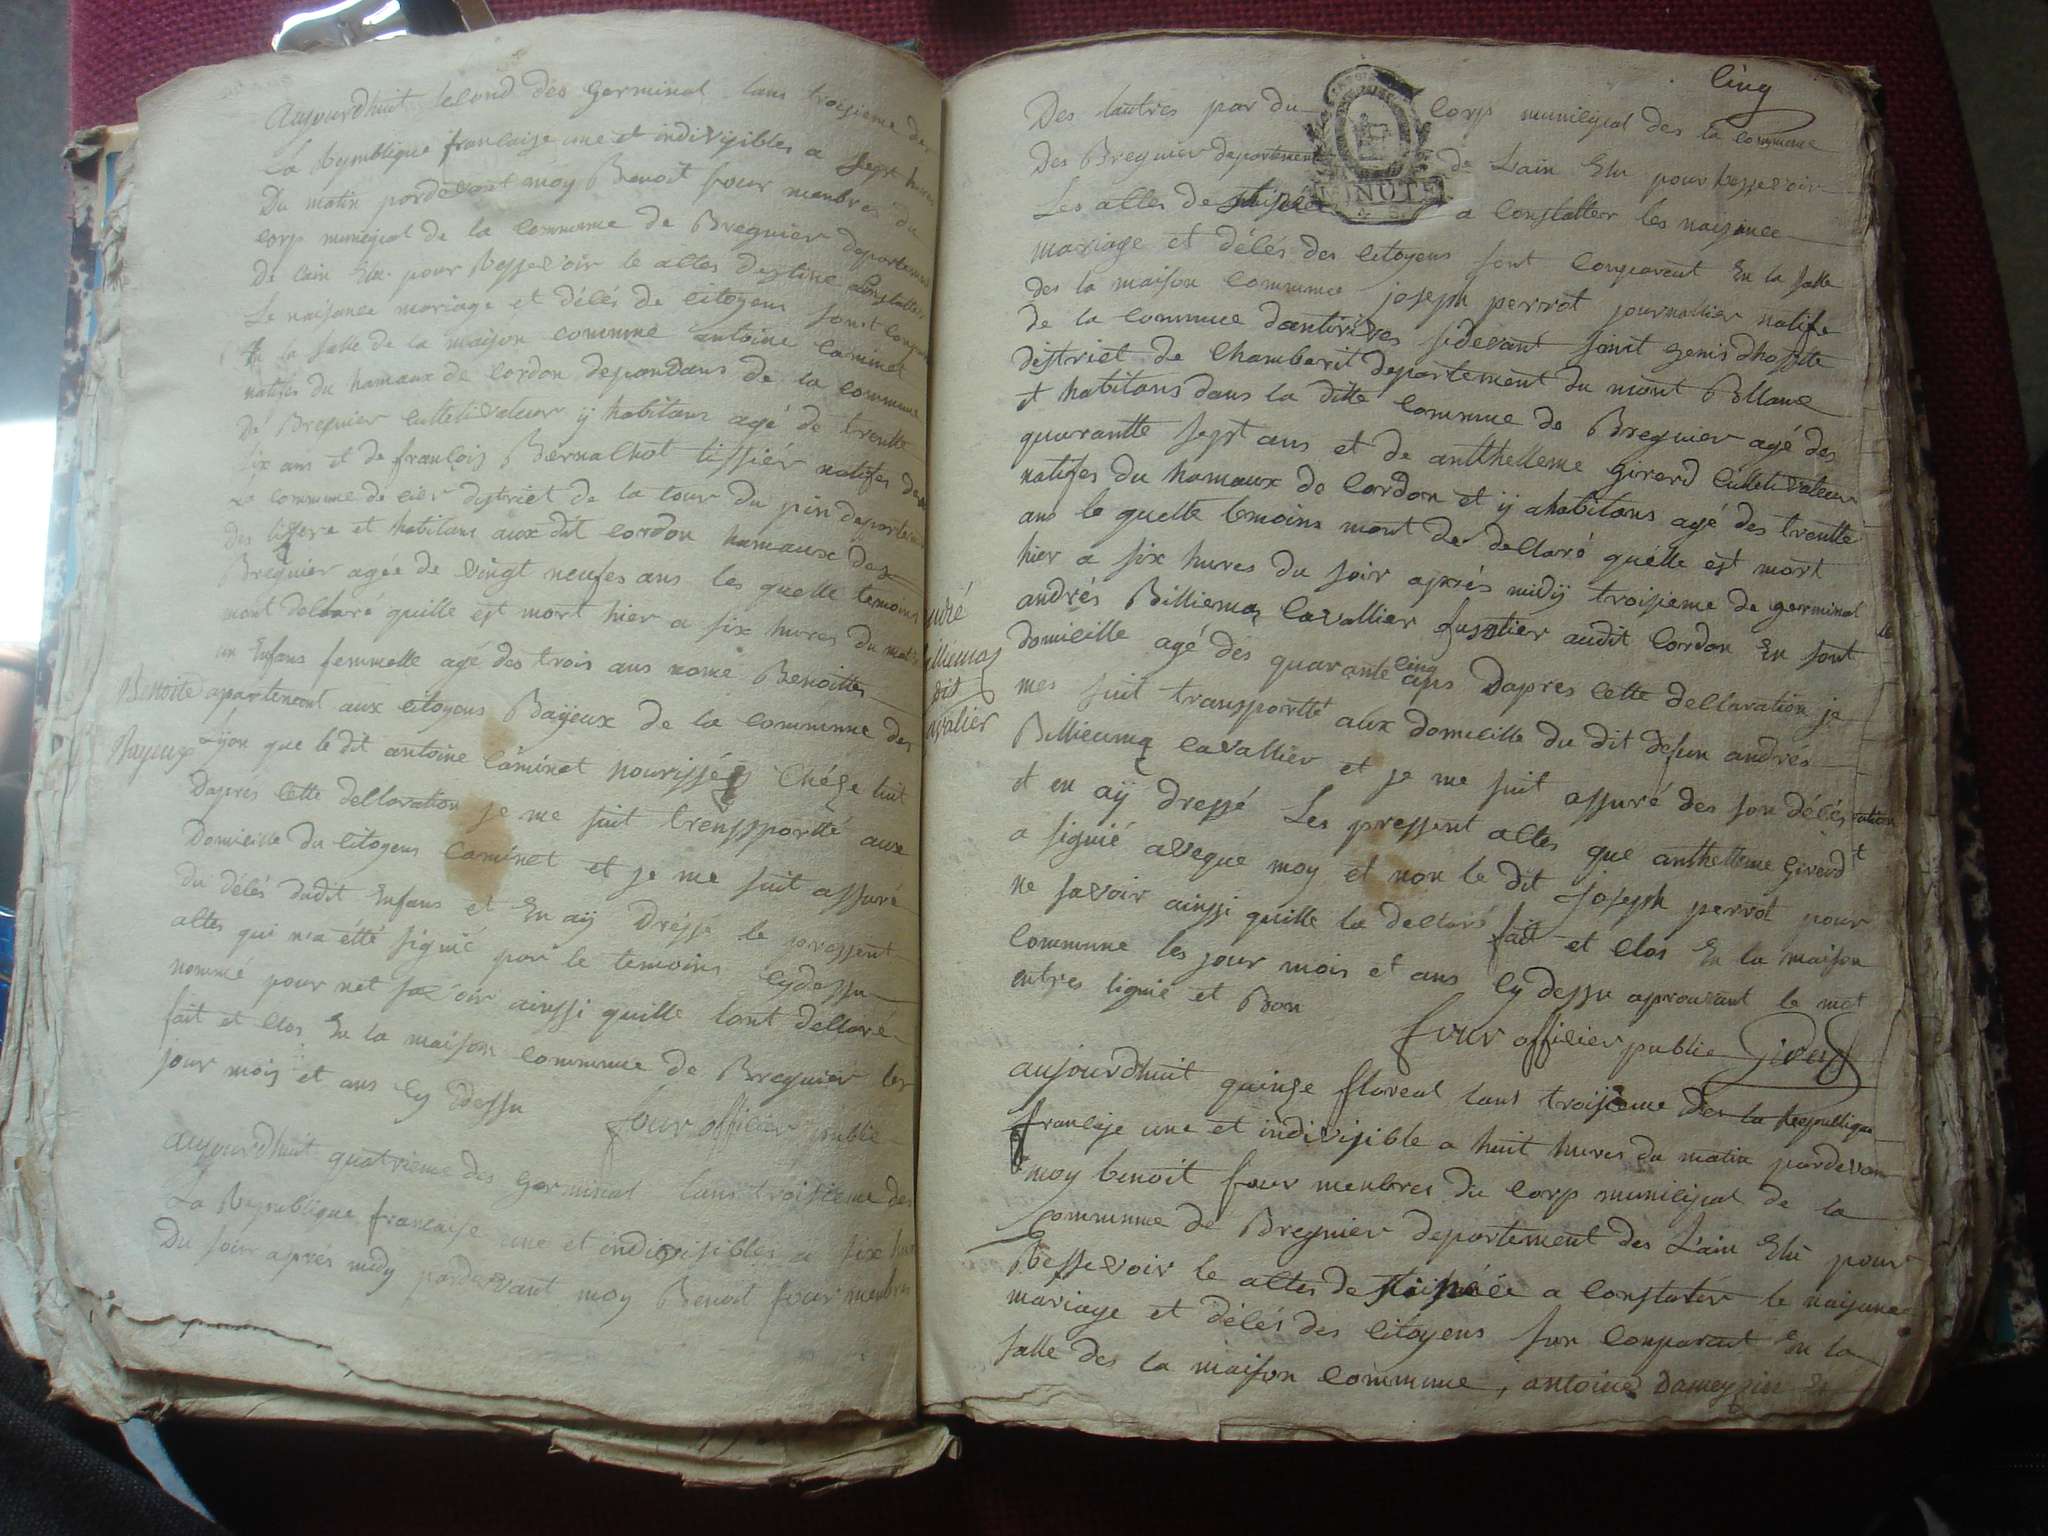 Aujourdhuit second des Germinal lans troisieme des
La Republique francaise une et indivisibles a sept heures
Du matin pardevant moy Benoit four menbres du
corp municipal de la commune de Bregnier departement
de lain Elu pour Ressevoir le altes destine Constatter
Le naisance mariage et délés de Citoyens sont Conpar
En la salle de la maison commune antoine Caminet
natifes du hamaux de Cordon dependans de la commune
dé Bregnier Culteivateur ÿ habitans agé de trentte
six ans et de françois Bernalhot tissiér natifes de
La commune de cier district de la tour du pin departement
des lissere et habitans aux dit Cordon hamaux des
Bregnier agée de vingt neufes ans les quelle temoins
mont dellaré quille est mort hier a six hures du matin
un Enfans femmelle agé des trois ans nomé Benoittes
Benoite
Bayeux
apartenant aux citoyens Bayeux de la commune des
Lÿon que le dit antoine Caminet nourissés Chése luit
Daprés cette dellaration je me suit trenssportté aux
Domicille du Citoyens Caminet et je me suit assuré
du délés dudit Enfans et En aÿ Dréssé le pressent
altes qui n'a étté signié par le temoins Cydessu
nommé pour net savoir ainssi quille lont dellaré
fait et Clos En la maison commune de Bregnier les
jour mois et ans Cy dessu
four officier public
aujourdhuit quatrieme des Germinal lans troisieme des
La Republique francaise une et indivisibles a six hur
Du soir apres midy pardevant moy Benoit four menbres
Cinq
Des lautres par du Corp municipal des la commune
des Bregnier departement de L'ain Elu pour Ressevoir
Les altes de a Constatter les naisance
mariage et délés des Citoyens sont Conparent En la salle
des la maison commune joseph perrot journallier natife
de la commune dantrives sidevant saint Genis dhosste
district de Chamberit departement du mont Bllanc
et habitans dans la ditte commune de Bregnier agé des
quarantte sept ans et de antthelleme Girerd Culteivateur
natifes du hamaux de Cordon et ÿ ahabitans agé des trentte
ans le quelle temoins mont de dellaré quélle est mort
hier a six hures du soir aprés midÿ troisieme de germinal
andré
Billiemaz
dit
Cavalier
andrés Billiemaz Cavallier audit Cordon En sont
domicille agé dés quarante cinq ans Daprés Cette dellaration je
mes suit transportté aux domicille du dit défun andrés
Billiemaz Cavalliér et je me suit assuré des son délés
et en aÿ dressé Les pressent altes que anthelleme Girerd
a signié aveque moy et non le dit joseph perrot pour
ne savoir ainssi quille la dellaré fait et Clos En la maison
commune les jour mois et ans Cy dessu aprouvant le mot
entres lignié et Bon
four officier public Girerd
aujourdhuit quinse floreal lans troisieme des la Republique
francaise une et indivisible a huit hures du matin pardevan
moy benoit four menbres du Corp municipal de la
Commune de Bregnier departement des L'ain Elû pour
Ressevoir le altes de a Constatér le naisance
mariage et délés des Citoyens son Conparant En la
salle des la maison commune, antoine Dameyzin Et